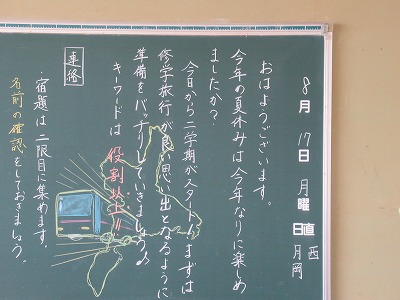 8月17日月曜日直西
月岡
おはようございます。
今年の夏休みは今年なりに楽しめ
ましたか？
今日から二学期がスタート！まずは
修学旅行が良い思い出となるように
準備をバッチリしていきましょう♪
キーワードは役割以上!!
連絡
・宿題は二限目に集めます。
名前の確認をしておきましょう。